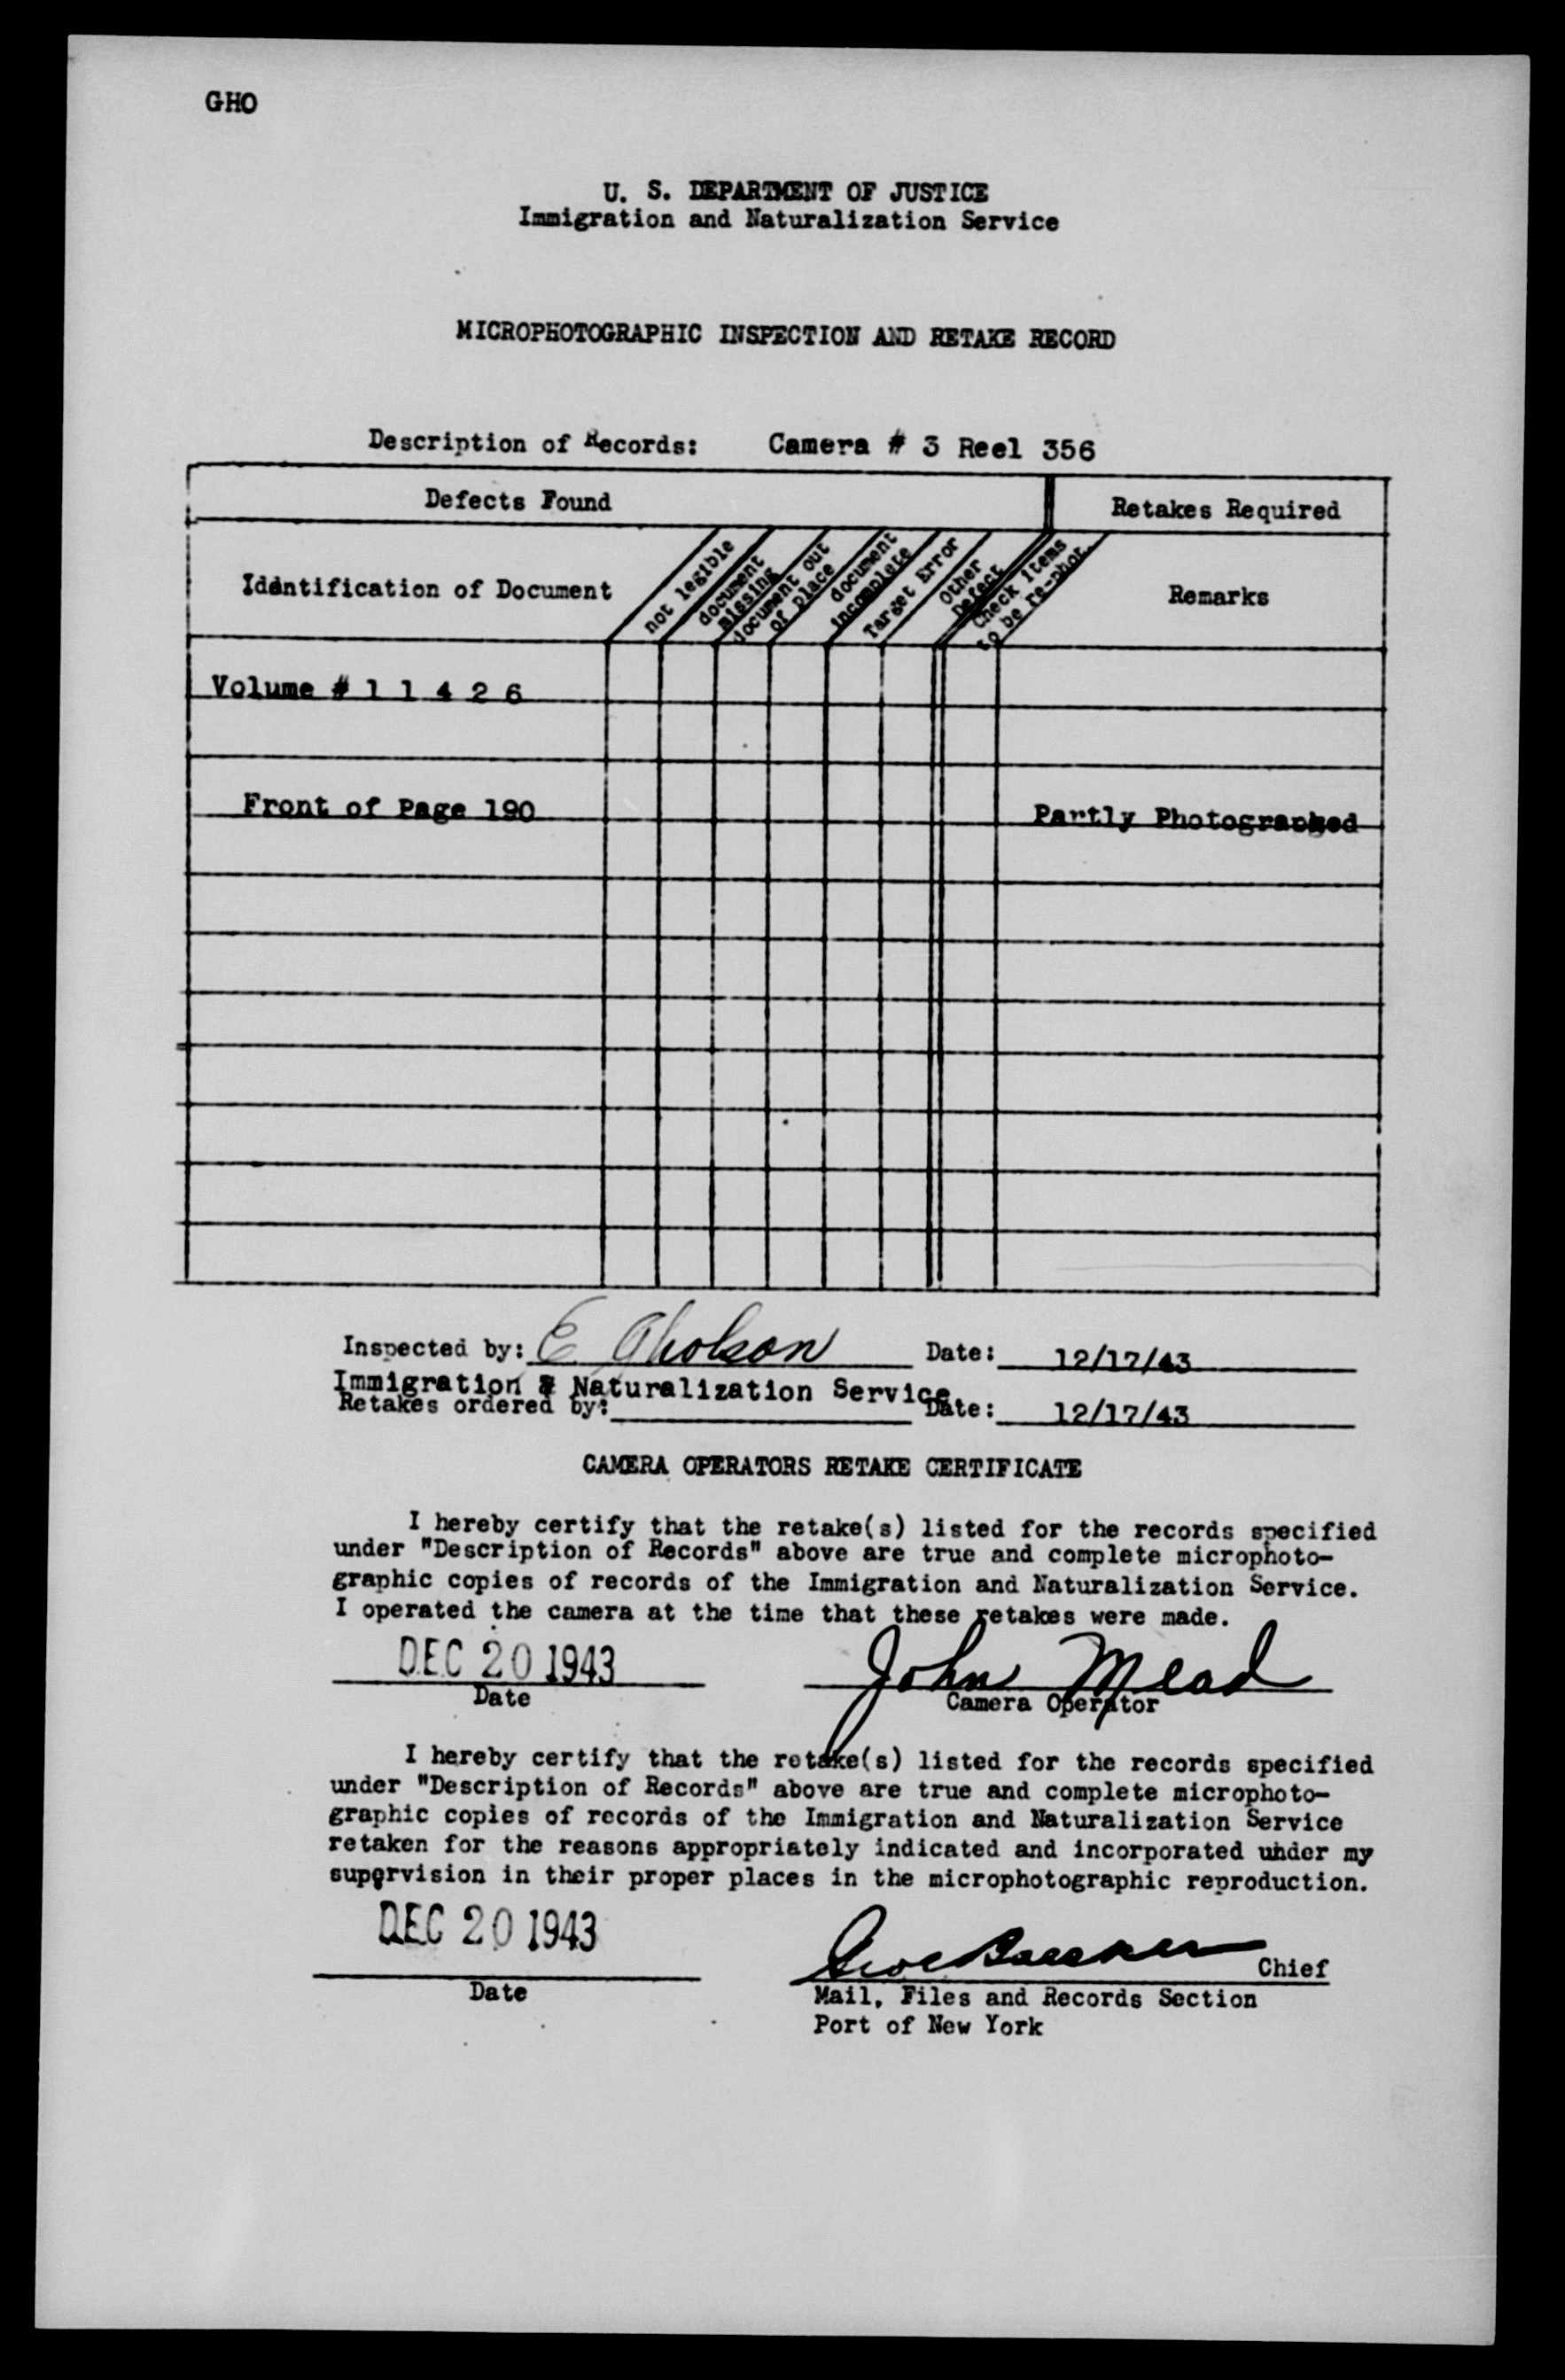 GHO
U. S. DEPARTMENT OF JUSTICE
Immigration and Naturalization Service
MICROPHOTOGRAPHIC INSPECTION AND RETAKE RECORD
Description of Records: Camera # 3 Reel 356
Defects Found
Retakes Required
Identification of Document
not legible
document
missing
document out
of place
document
incomplete
Target Error
Other
Defect
Check Items
to be re-phot.
Remarks
Volume # 1 1 4 2 6
Front of Page 190
Partly Photographed
Inspected by: E Gholson Date: 12/17/43
Immigration & Naturalization Service
Retakes ordered by: Date: 12/17/43
CAMERA OPERATORS RETAKE CERTIFICATE
I hereby certify that the retake(s) listed for the records specified
under "Description of Records" above are true and complete microphoto-
graphic copies of records of the Immigration and Naturalization Service.
I operated the camera at the time that these retakes were made.
DEC 20 1943 John Mead
Date Camera Operator
I hereby certify that the retake(s) listed for the records specified
under "Description of Records" above are true and complete microphoto-
graphic copies of records of the Immigration and Naturalization Service
retaken for the reasons appropriately indicated and incorporated under my
supervision in their proper places in the microphotographic reproduction.
DEC 20 1943
Chief
Date
Mail, Files and Records Section
Port of New York